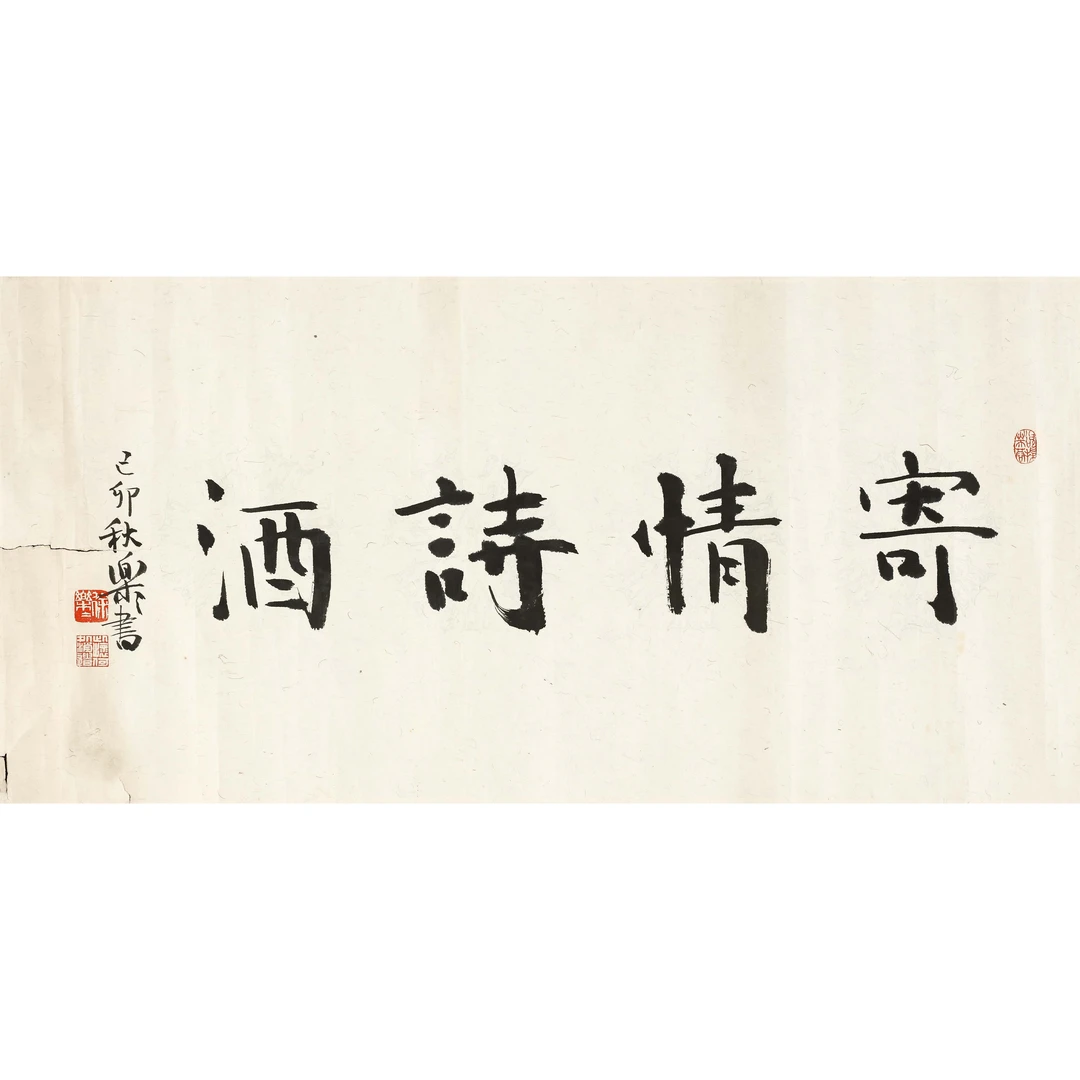 寄情詩酒
己卯秋樂樂書